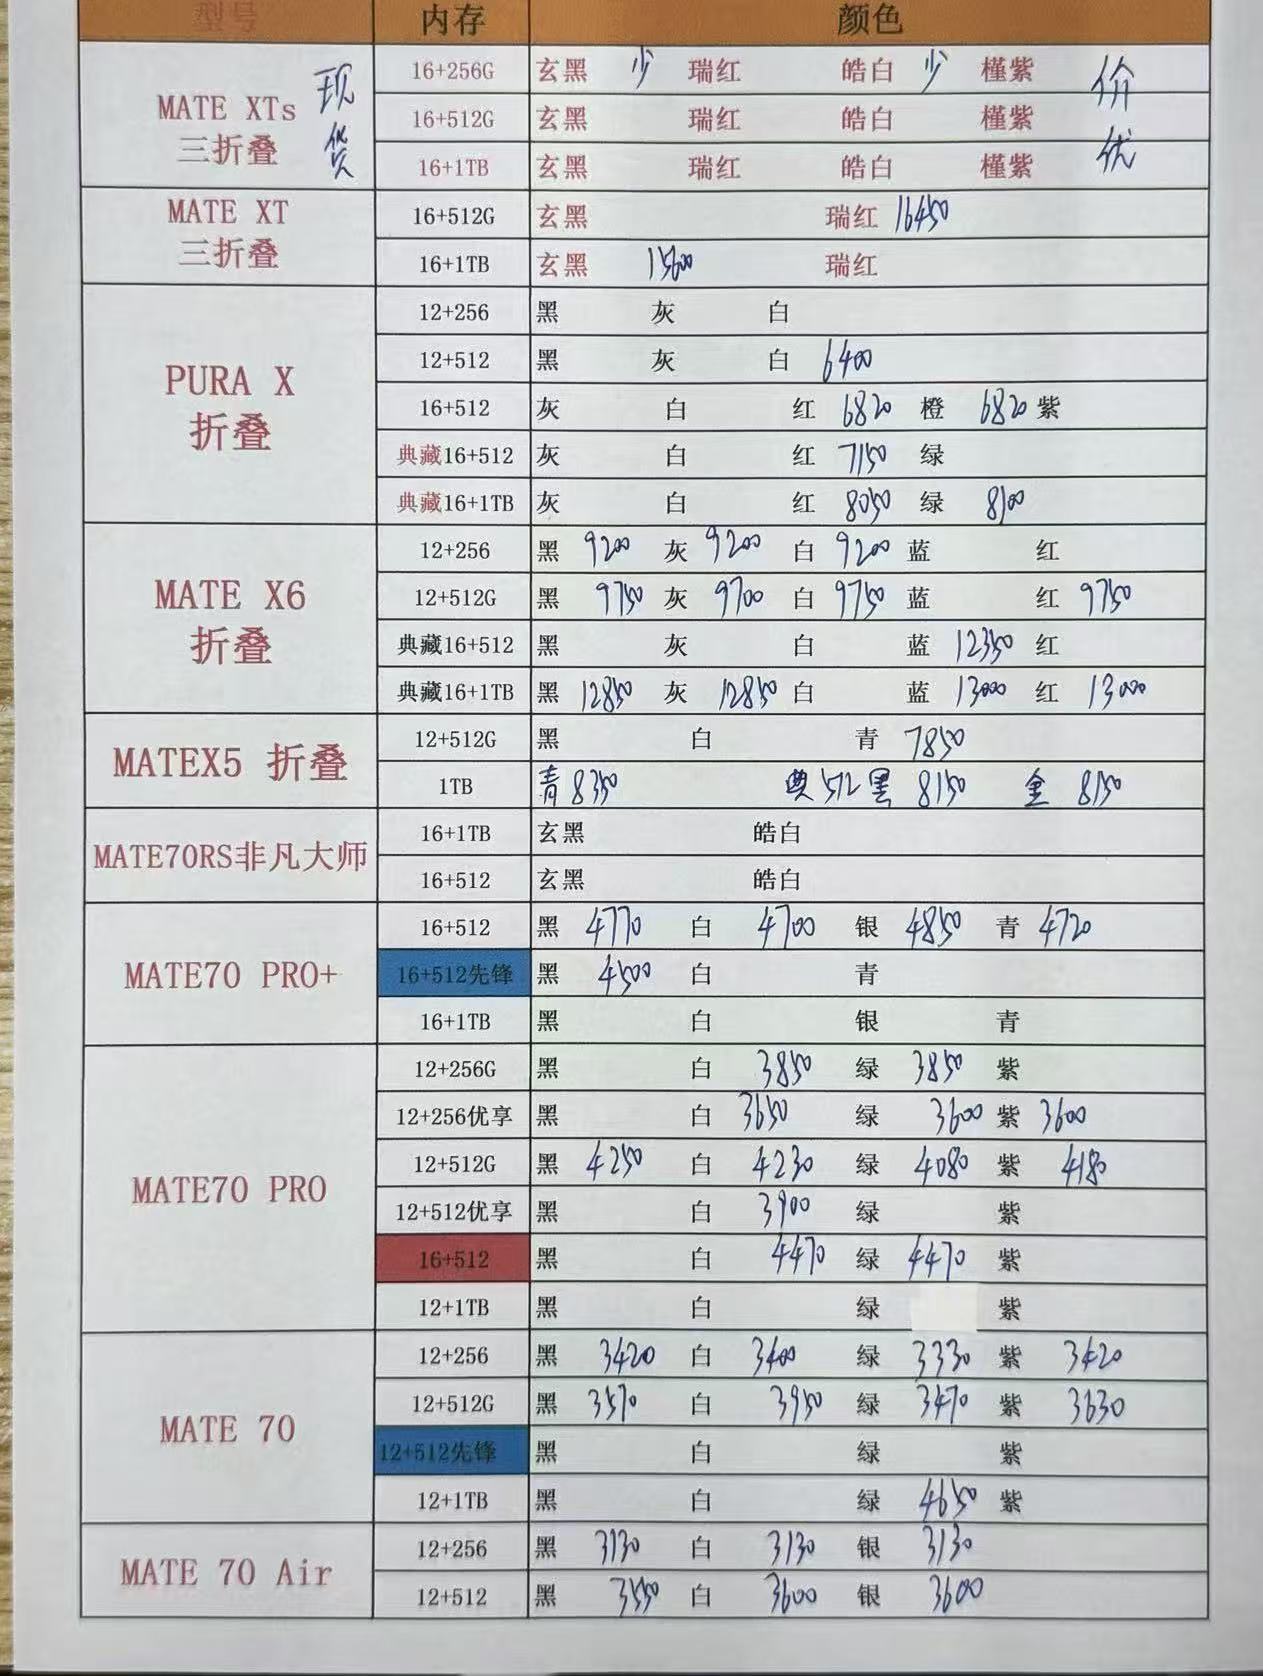 型号 内存 颜色
MATE XTs 三折叠 现货
16+256G 玄黑 少 瑞红 皓白 少 槿紫 价
16+512G 玄黑 瑞红 皓白 槿紫
16+1TB 玄黑 瑞红 皓白 槿紫 优
MATE XT 三折叠
16+512G 玄黑 瑞红 16450
16+1TB 玄黑 15600 瑞红
PURA X 折叠
12+256 黑 灰 白
12+512 黑 灰 白 6400
16+512 灰 白 红 6820 橙 6820 紫
典藏16+512 灰 白 红 7150 绿
典藏16+1TB 灰 白 红 8050 绿 8100
MATE X6 折叠
12+256 黑 9200 灰 9200 白 9200 蓝 红
12+512G 黑 9750 灰 9700 白 9750 蓝 红 9750
典藏16+512 黑 灰 白 蓝 12350 红
典藏16+1TB 黑 12850 灰 12850 白 蓝 13000 红 13000
MATEX5 折叠
12+512G 黑 白 青 7850
1TB 青 8350 典512黑 8150 金 8150
MATE70RS非凡大师
16+1TB 玄黑 皓白
16+512 玄黑 皓白
MATE70 PRO+
16+512 黑 4770 白 4700 银 4850 青 4720
16+512先锋 黑 4500 白 青
16+1TB 黑 白 银 青
MATE70 PRO
12+256G 黑 白 3850 绿 3850 紫
12+256优享 黑 白 3650 绿 3600 紫 3600
12+512G 黑 4250 白 4230 绿 4080 紫 4180
12+512优享 黑 白 3900 绿 紫
16+512 黑 白 4470 绿 4470 紫
12+1TB 黑 白 绿 紫
MATE 70
12+256 黑 3420 白 3400 绿 3330 紫 3420
12+512G 黑 3570 白 3950 绿 3470 紫 3630
12+512先锋 黑 白 绿 紫
12+1TB 黑 白 绿 4650 紫
MATE 70 Air
12+256 黑 3130 白 3130 银 3130
12+512 黑 3550 白 3600 银 3600